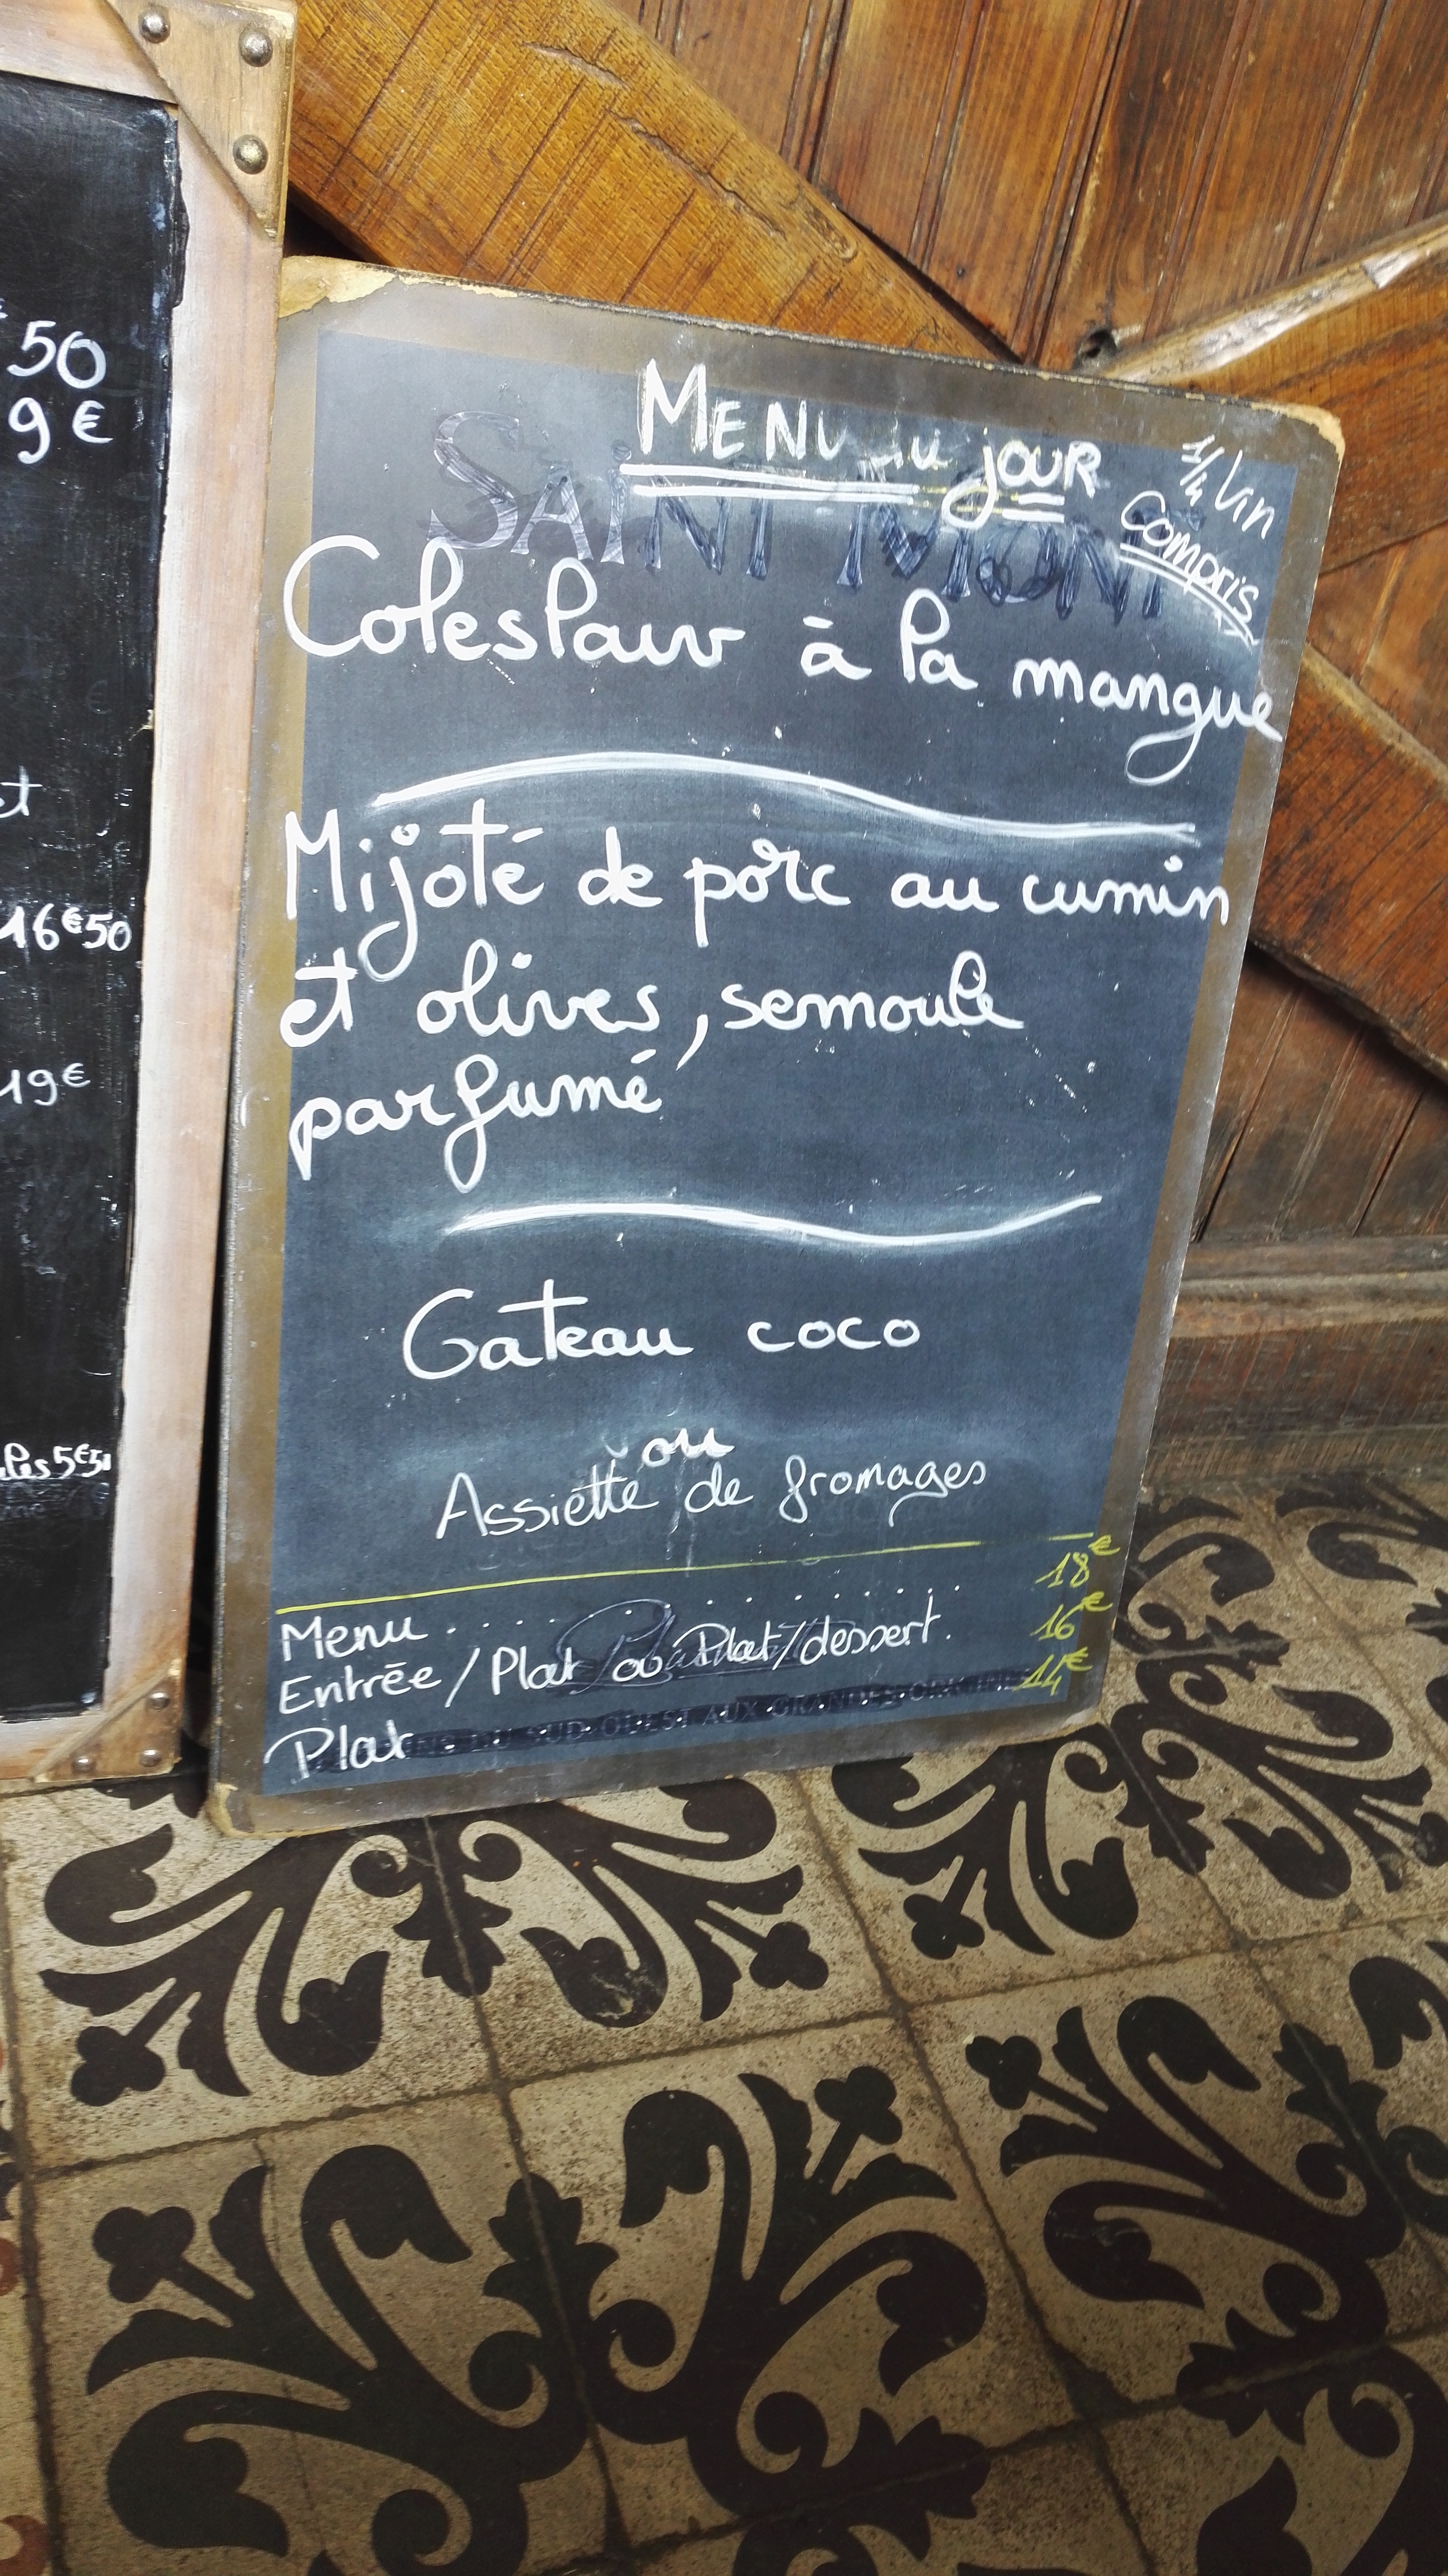 50
9€
et
16€50
19€
5€50
MENU du jOUR
1/4 Vin
Compris
SAiNT MONT
Coleslaw à la mangue
Mijoté de porc au cumin
et olives, semoule
parfumé
Gateau coco
ou
Assiette de fromages
Menu . . . . . . . . . . . 18€
Entrée / Plat ou Plat/dessert. 16€
Plat . . . . . . . . . . . 14€
SUD-OUEST AUX GRANDES